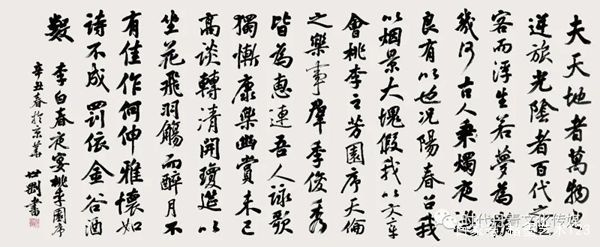 夫天地者萬物
逆旅光陰者百代之
客而浮生若夢為
幾何古人秉燭夜
良有以也況陽春召我
以烟景大塊假我以文章
會桃李之芳園序天倫
之樂事羣季俊秀
皆為惠連吾人詠歌
獨慚康樂幽賞未已
高談轉清開瓊筵以
坐花飛羽觴而醉月不
有佳作何伸雅懷如
詩不成罰依金谷酒
數
李白春夜宴桃李園序
辛丑春於京華 世剛書
时代丹青文化传媒